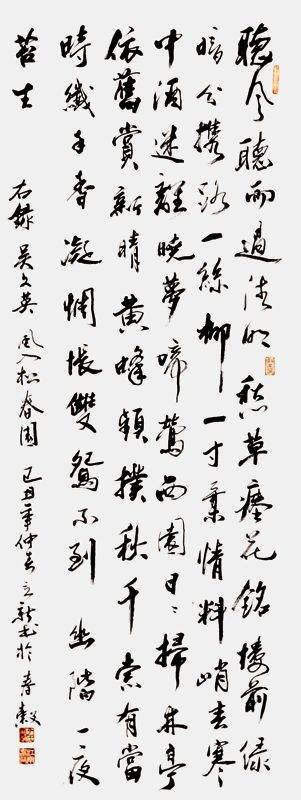 聽风聽雨過清明愁草瘞花銘樓前綠
暗分攜路一絲柳一寸柔情料峭春寒
中酒迷離曉夢啼鶯西園日〻掃林亭
依舊賞新晴黃蜂頻撲秋千索有當
時纖手香凝惆悵雙鴛不到幽階一夜
苔生
右錄吳文英風入松春園己丑年仲春立新書於